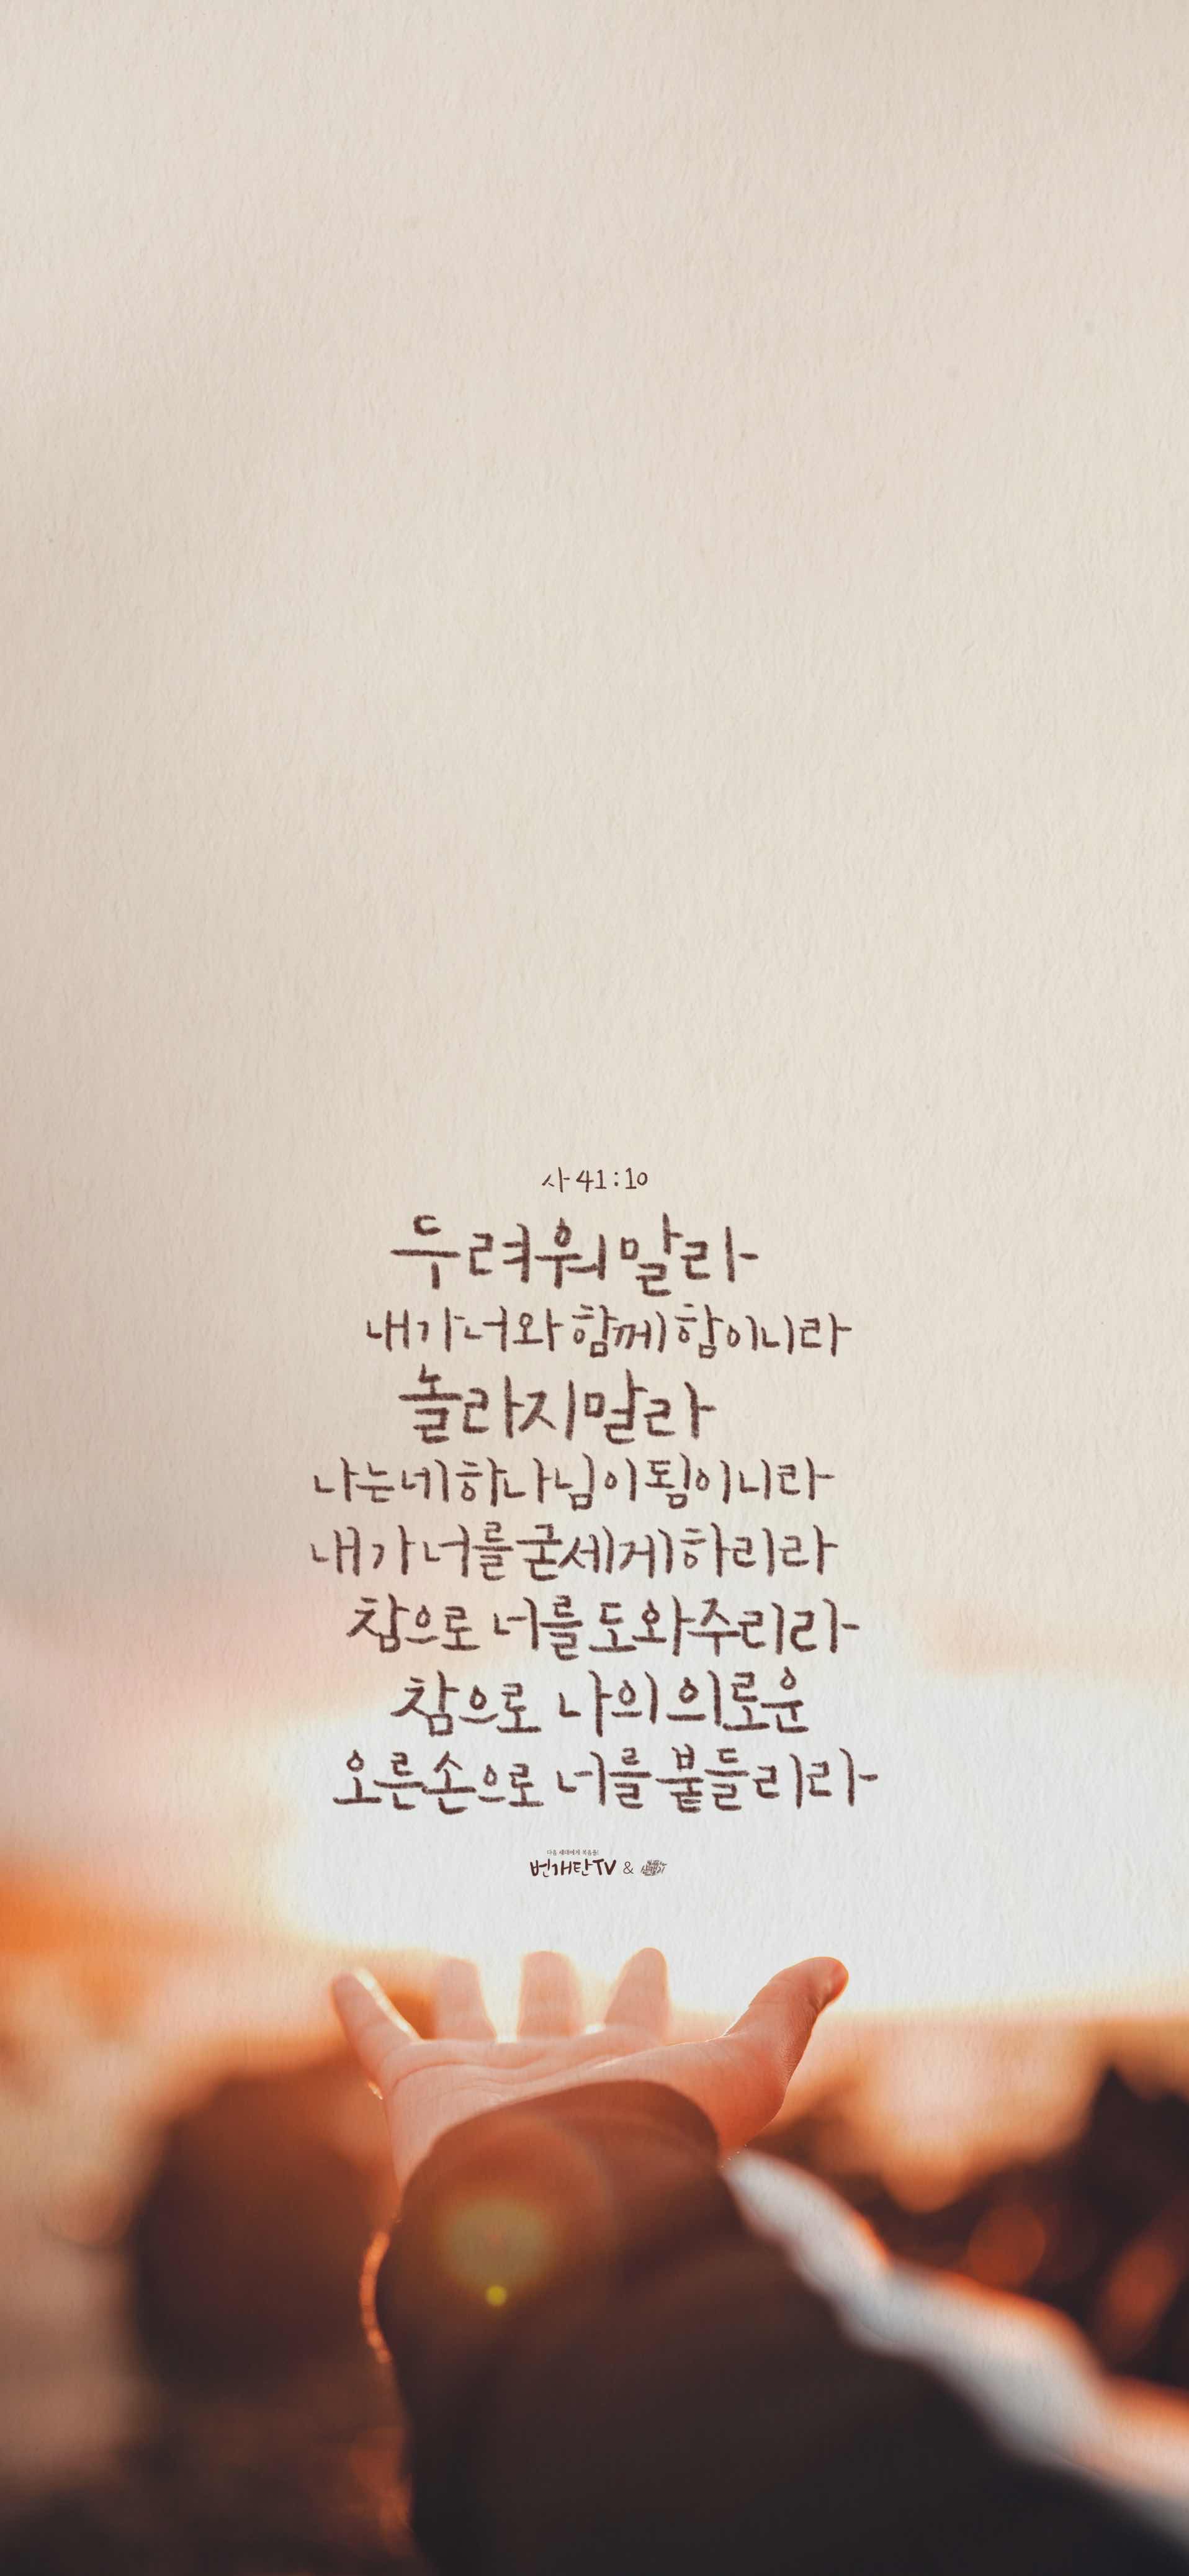 사 41:10
두려워 말라
내가 너와 함께 함이니라
놀라지 말라
나는 네 하나님이 됨이니라
내가 너를 굳세게 하리라
참으로 너를 도와주리라
참으로 나의 의로운
오른손으로 너를 붙들리라
다음 세대에게 복음을!
번개탄TV &